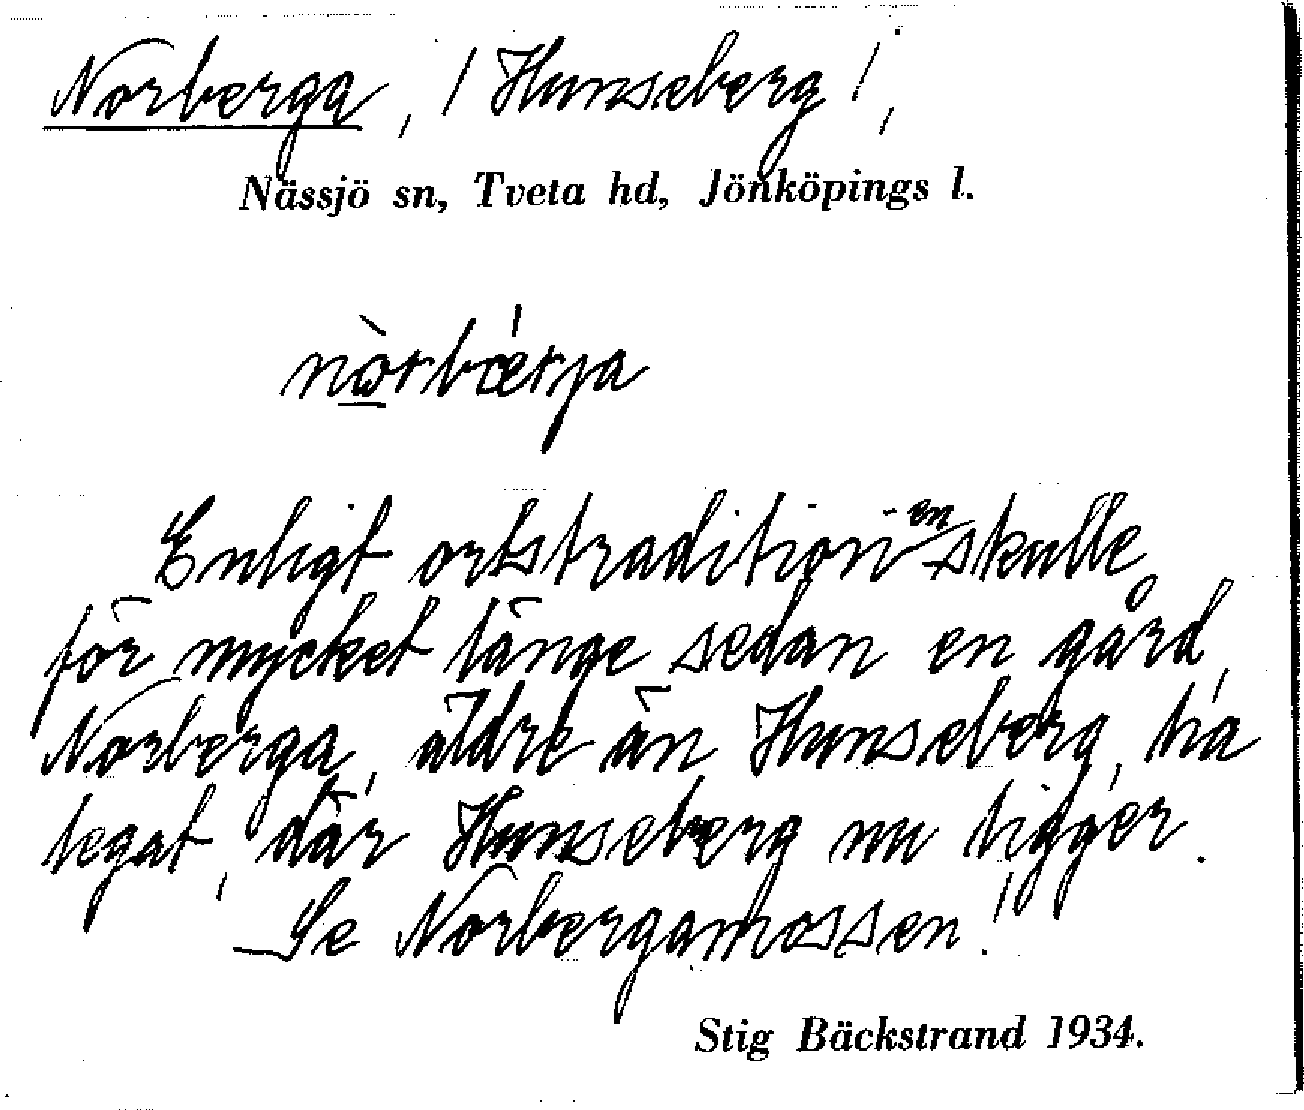 Norberga, / Hunseberg /,
Nässjö sn, Tveta hd, Jönköpings l.
nòrbǽrja
Enligt ortstraditionen skulle
för mycket länge sedan en gård,
Norberga, äldre än Hunseberg, ha
legat, där Hunseberg nu ligger.
Se Norbergamossen!
Stig Bäckstrand 1934.